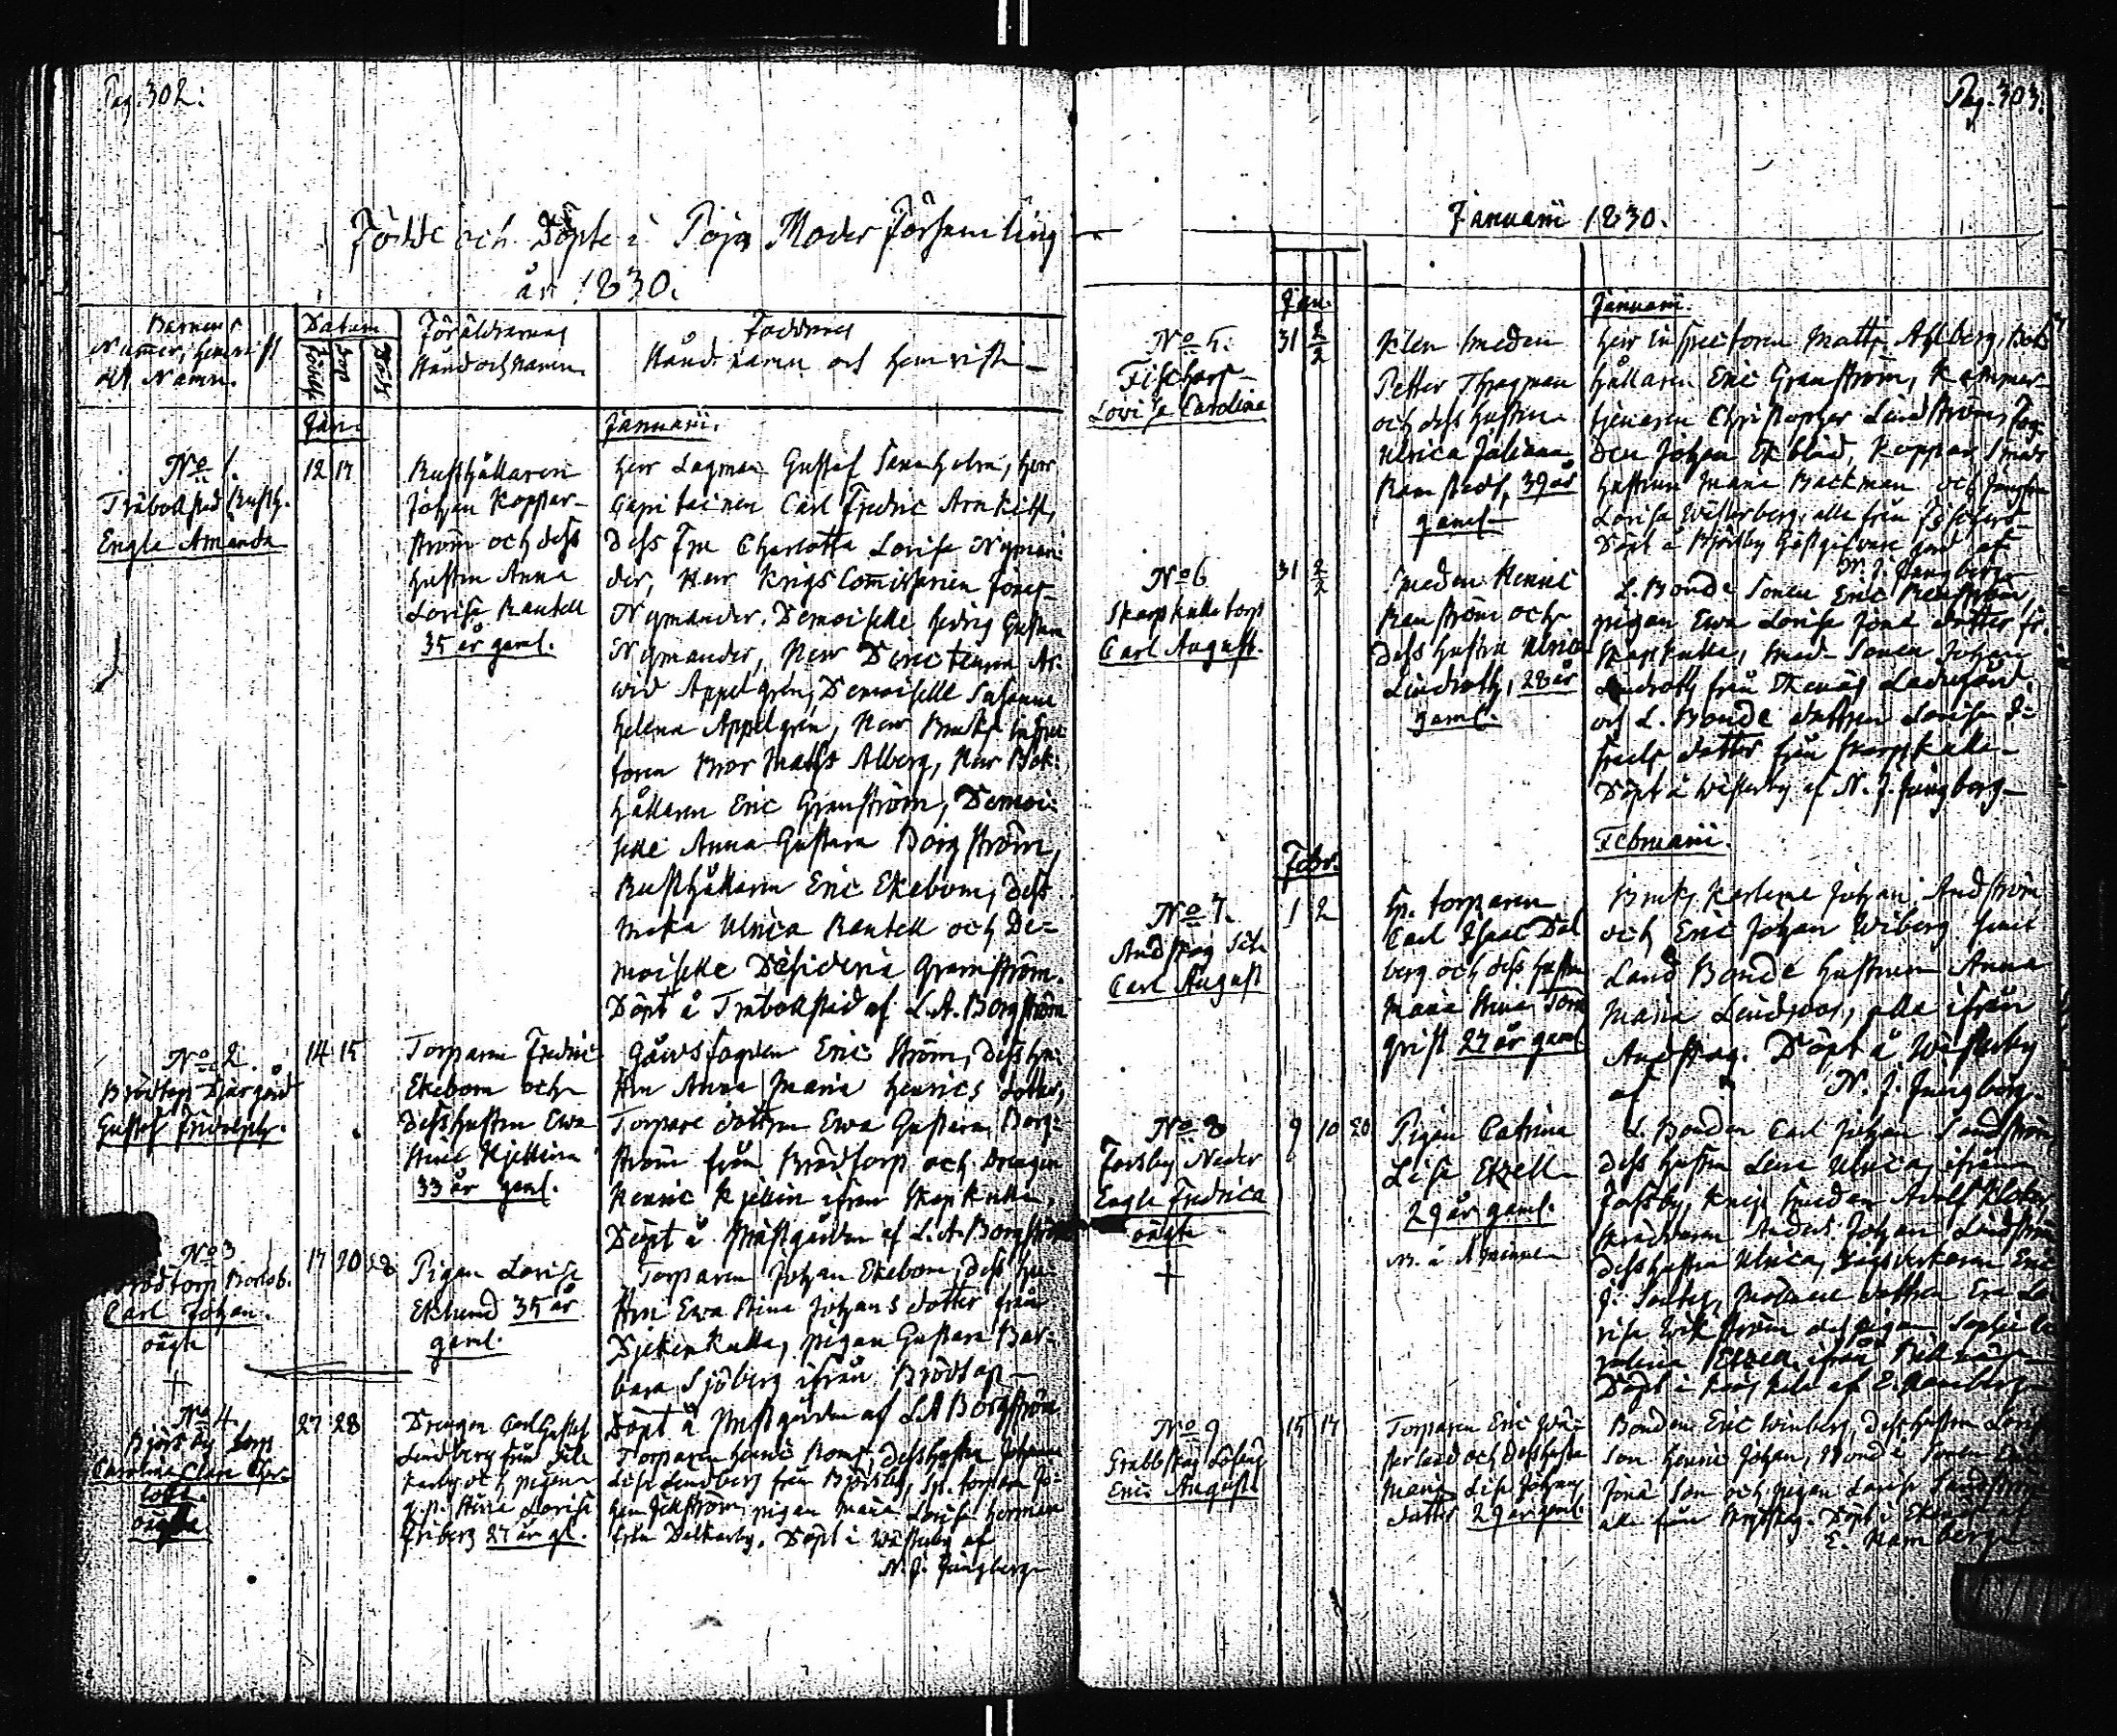 Pag. 302.
Födde och Döpte i Pojo Moder Församling
år 1830.
Barnens
Numer, hemvist
och Namn.
Datum
född
döp
död
Föräldrarnas
Stånd och Namn.
Faddrarnes
Stånd namn och hemvist
Jan.
Januarii.
No 1.
Träbollstad Rusth.
Engla Amanda
12 17
Rusthållaren
Johan Koppar-
ström och dess
hustru Anna
Lovisa Rantell
35 år gaml.
Herr Lagman Gustaf Sannholm, Herr
Capitainen Carl Fredric Arnkill,
dess Fru Charlotta Lovisa Nyman-
der, Herr Krigs Commissarien Jones
Nymander, Demoiselle Hedvig Gustava
Nymander, Herr Directeuren Ar-
wid Appelgren, Demoiselle Susanna
Helena Appelgren, Herr Bruks Inspec-
toren Bror Maths Alberg, Herr Bok-
hållaren Eric Granström, Demoi-
selle Anna Gustava Borgström,
Rusthållaren Eric Ekebom, dess
maka Ulrica Rantell och De-
moiselle Desideria Granström.
Döpt å Träbollstad af L. A. Borgström
No 2.
Brödtorp Djurgård
Gustaf Fridolph.
14 15
Torparen Fredric
Ekebom och
dess hustru Ewa
Stina Kjellin
33 år gaml.
Gårdsfogden Eric Ström, dess hu-
stru Anna Maria Henrics dotter,
Torpare dottren Ewa Gustava Borg-
ström från Brödtorp och Drengen
Henric Kjellin ifrån Skarpkulla.
Döpt å Prästgården af L. A. Borgström
No 3
Brödtorp
Carl Johan.
oägta
17 20 28
Pigan Lovisa
Eklund 35 år
gaml.
Torparen Johan Ekebom, dess hu-
stru Ewa Stina Johans dotter från
Djekenkulla, pigan Gustava Bar-
bara Sjöberg ifrån Brödtorp
Döpt å Prestgården af L A Borgström
No 4.
Björsby torp
Carolina Clara Char-
lotta.
oägta
27 28
Drengen Carl Gustaf
Lindberg från
och pigan
Stina Lovisa
Friberg 27 år gl.
Torparen Henric Roms, dess hustru Johanna
Lisa Lindberg från Björsby, Sp. torparen Jo-
han Jckström, pigan Maria Lovisa Herman
från Dalkarby. Döpt i Wästerby af
N. J. Jungberg
Pag. 303.
Januarii 1830.
Jan.
Januarii.
No 5.
Fischars
Lovisa Carolina
31 2/2
Klen Smeden
Petter Thragman
och dess hustru
Ulrica Juliana
Ramstedt, 39 år
gaml
Herr Inspectoren Matts Ahlberg, Bok-
hållaren Eric Granström, Kammar-
tjenaren Christopher Lindström, Fog-
den Johan Ekblad, Koppar Smeds
hustrun Maria Backman och Jungfru
Lovisa Westerberg, alla från Fischars
Döpt å Björsby Gästgifvare gård af
N. J. Jungberg
No 6
Skarpkulla torp
Carl August.
31 2/2
Smeden Henric
Ranström och
dess hustru Ulrica
Lindroth, 28 år
gaml.
L. Bonde Sonen Eric Renström,
pigan Ewa Lovisa Jona dotter fr.
Skarpkulla, Smed Sonen Johan
Lindroth från Ekenäs Ladugård,
och L. Bonde dottren Lovisa I-
sracls dotter från Skarpkulla
Döpt å Westerby af N. J. Jungberg
Febr.
Februarii.
No 7.
Andskog
Carl August
1 2
Sp. torparen
Carl Isaac Dal
berg och dess hustru
Maria Stina Törn
qvist 27 år gaml
Bruks Karlerne Johan Andström
och Eric Johan Wiberg samt
Land Bonde hustrun Anna
Maria Lindroos, alla ifrån
Andskog. Döpt å Westerby
af N. J. Jungberg.
No 8
Forsby Neder
Engla Fredrica
oägta
9 10 20
Pigan Catrina
Lisa Ekzell
29 år gaml.
L. Bonden Carl Johan Sandström
dess hustru Lena Ulrica, ifrån
Forsby, Knip Smeden Adolf
Skräddaren Anders Johan Lindström
dess hustru Ulrica, Eric
dottren Eva Lo-
visa Wikström och pigan Sophia
Döpt i af E. Ramberg
No 9
Grabbskog
Eric August
15 17
Torparen Eric Wä-
sterlund och dess hustru
Maria Lisa Johans
dotter 29 år gaml.
Bonden Eric Winberg, dess hustru Lovisa
Son Henric Johan, Bonde Sonen Eric
Jona Son och pigan Lovisa Sandström
alla från Döpt i Ekenäs af
E. Ramberg